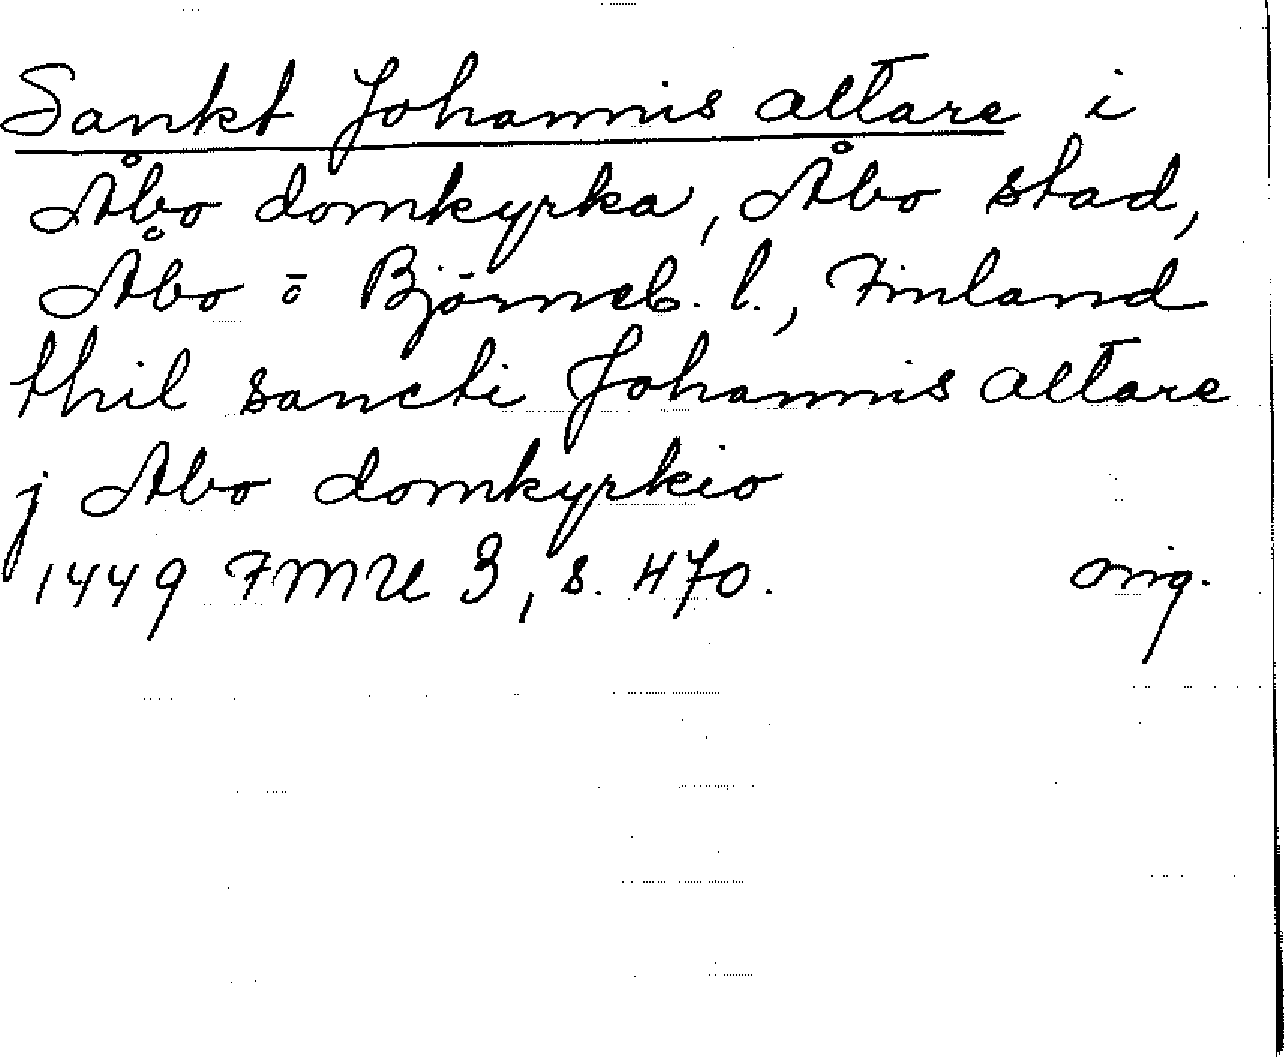 Sankt Johannis altare i
Åbo domkyrka, Åbo stad,
Åbo o Björneb. l., Finland
thil sancti Johannis altare
j Abo domkyrkio
1449 FMU 3, s. 470. orig.